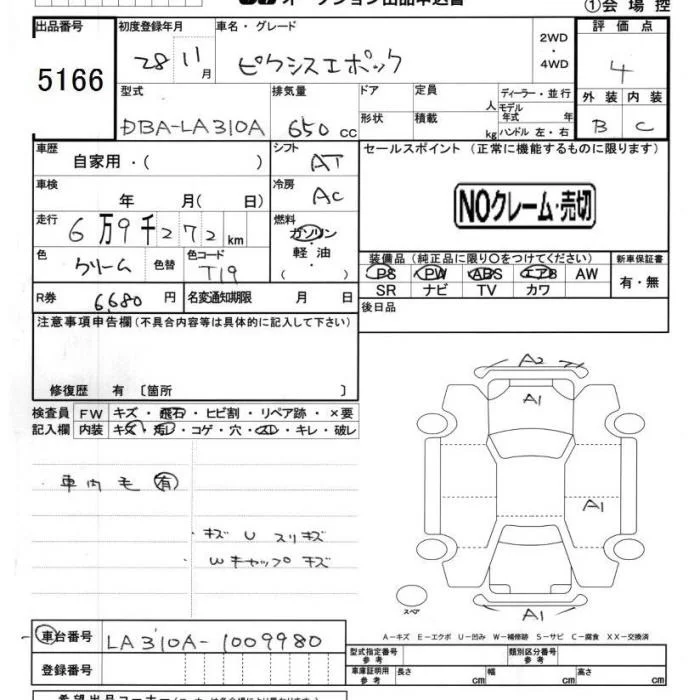 オークション出品申込書
①会場控
出品番号
5166
初度登録年月
28 11月
車名・グレード
ピクシスエポック
2WD・4WD
評価点
4
型式
DBA-LA310A
排気量
650 cc
ドア
形状
定員 人
積載 kg
ディーラー・並行
モデル年式 年
ハンドル 左・右
外装 内装
B C
車歴
自家用・( )
シフト
AT
セールスポイント(正常に機能するものに限ります)
車検
年 月( 日)
冷房
AC
NOクレーム・売切
走行
6万9千272km
燃料
ガソリン
軽・油
( )
色
クリーム
色替
色コード
T19
装備品(純正品に限り〇をつけてください)
PS PW ABS エアB AW
SR ナビ TV カワ
新車保証書
有・無
R券 6,680円
名変通知期限 月 日
後日品
注意事項申告欄(不具合内容等は具体的に記入して下さい)
修復歴 有 〔箇所 〕
検査員記入欄
FW キズ・飛石・ヒビ割・リペア跡・×要
内装 キズ・汚レ・コゲ・穴・スレ・キレ・破レ
・車内毛有
・キズ U スリキズ
Wキャップキズ
A2
A1
A1
A1
スペア
A−キズ E−エクボ U−凹み W−補修跡 S−サビ C−腐食 XX−交換済
車台番号 LA310A-1009980
登録番号
型式指定番号 参考
類別区分番号 参考
車庫証明用 参考
長さ cm 幅 cm 高さ cm
希望出品コーナー